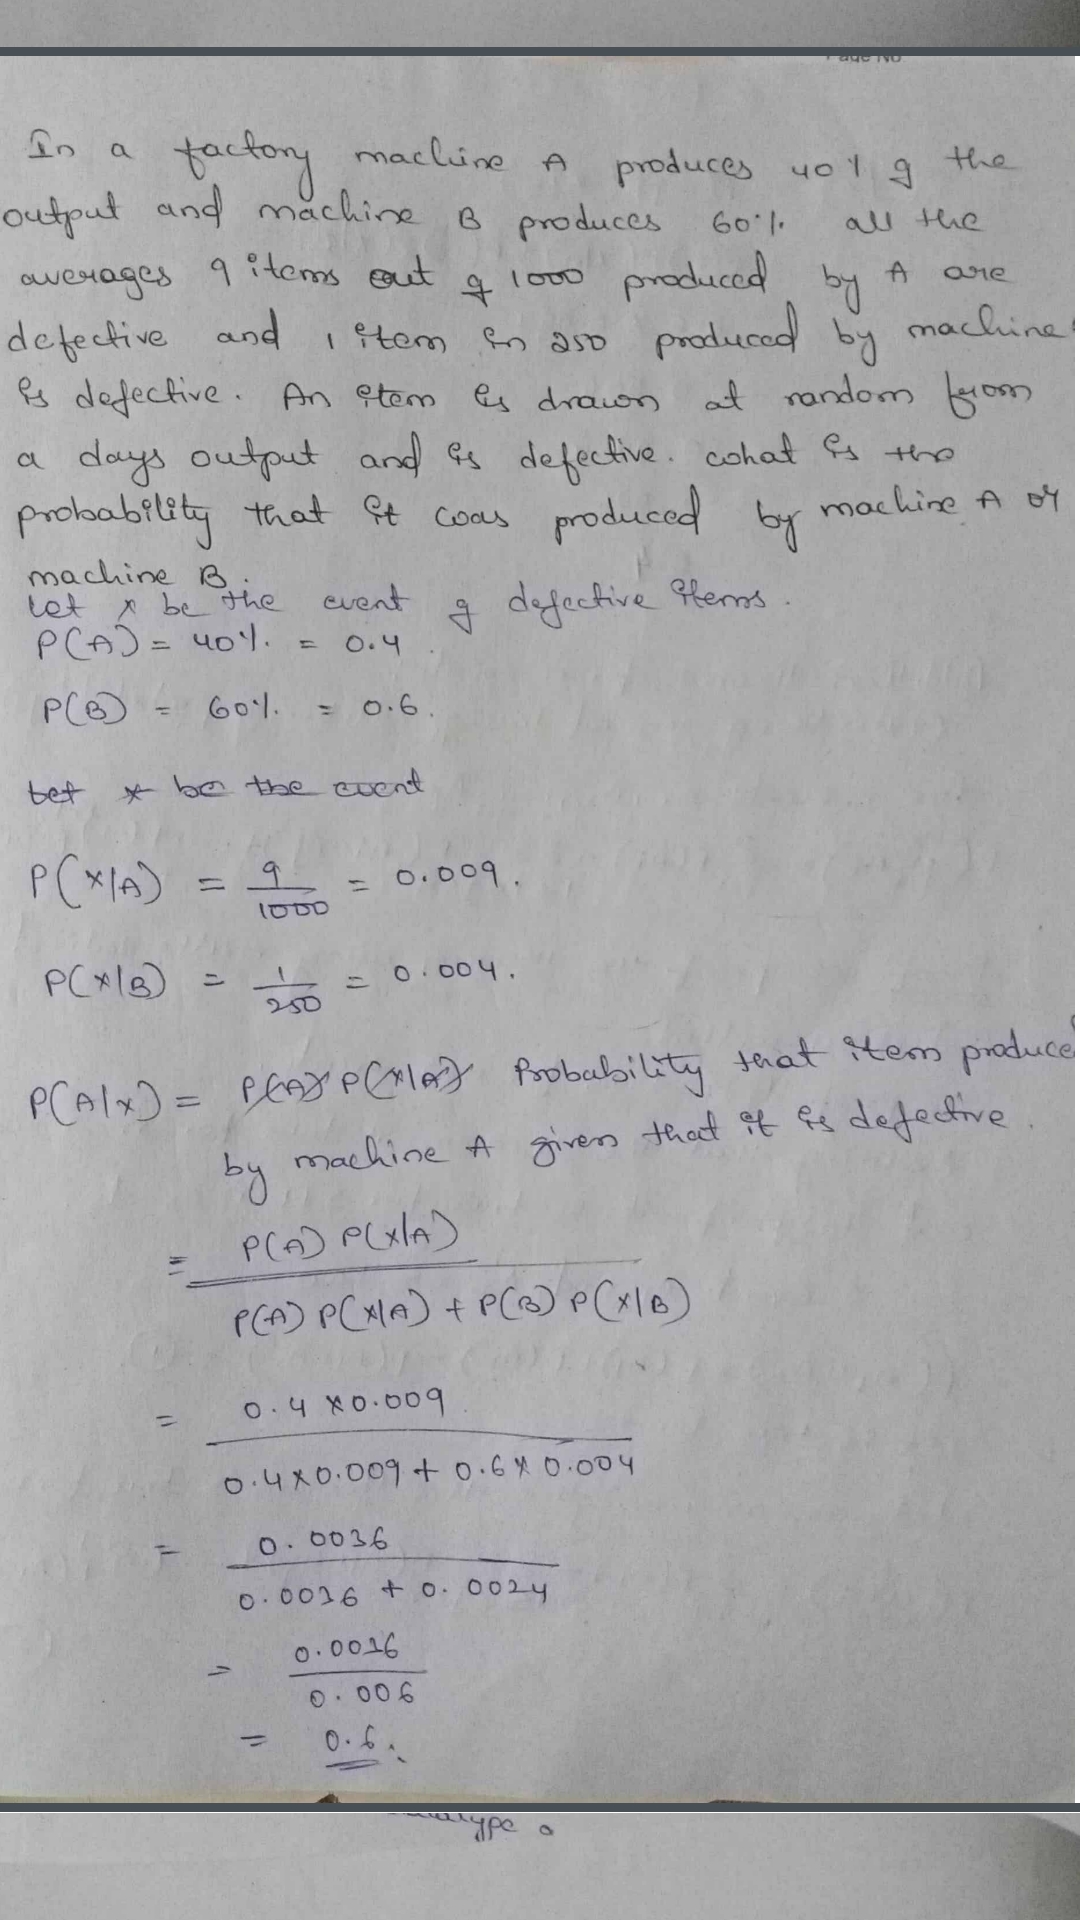 Page No
In a factory machine A produces 40% of the
output and machine B produces 60% all the
averages 9 items out of 1000 produced by A are
defective and 1 item in 250 produced by machine
is defective. An item is drawn at random from
a days output and is defective. what is the
probability that it was produced by machine A or
machine B.
Let x be the event of defective items.
P(A) = 40% = 0.4.
P(B) = 60% = 0.6.
Let x be the event
P(X/A) = 9/1000 = 0.009.
P(X/B) = 1/250 = 0.004.
P(A/X) = P(A) P(X/A) Probability that item produce
by machine A given that it is defective.
= P(A) P(X/A)
P(A) P(X/A) + P(B) P(X/B)
= 0.4 x 0.009
0.4 x 0.009 + 0.6 x 0.004
= 0.0036
0.0036 + 0.0024
= 0.0036
0.006
= 0.6.